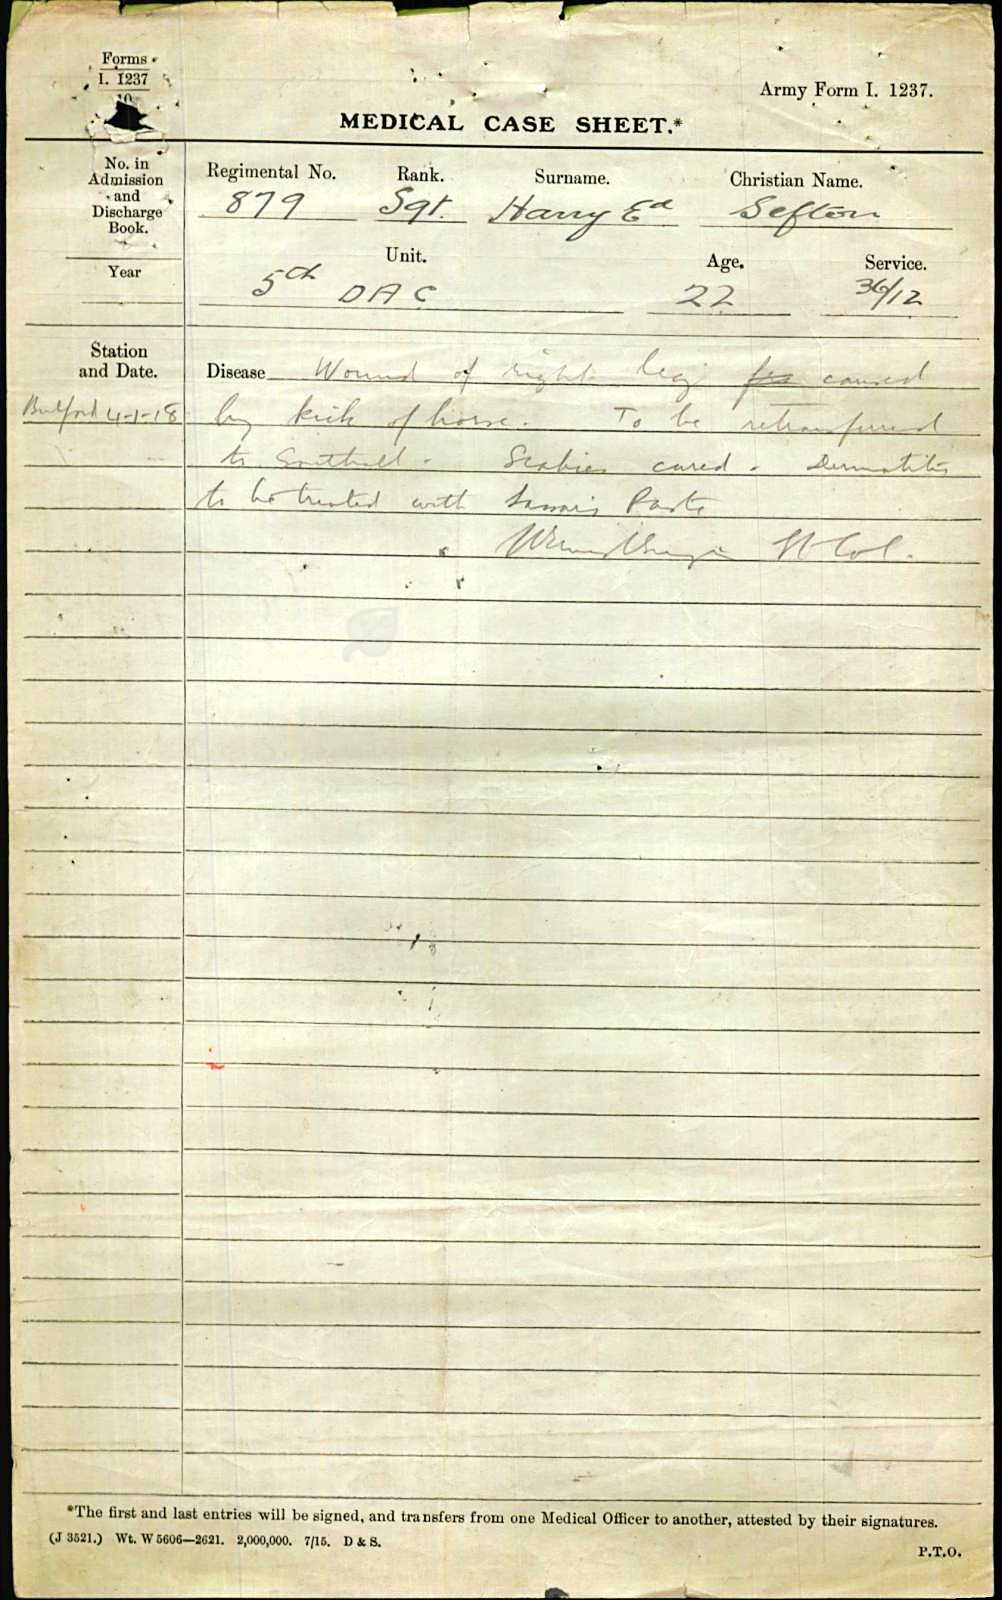 Forms
I. 1237
Army Form I. 1237.
MEDICAL CASE SHEET.*
No. in
Admission
and
Discharge
Book.
Year
Regimental No. Rank. Surname. Christian Name.
879 Sgt. Harry Ed Sefton
Unit. Age. Service.
5th DAC 22 36/12
Station
and Date.
Disease Wound of right leg caused
Bulford 4-1-18 by kick of horse. To be retransferred
to Southall. Scabies cured. Dermatitis
to be treated with Lassar's Paste
Lt Col.
*The first and last entries will be signed, and transfers from one Medical Officer to another, attested by their signatures.
(J 3521.) Wt. W 5606—2621. 2,000,000. 7/15. D & S.
P.T.O.